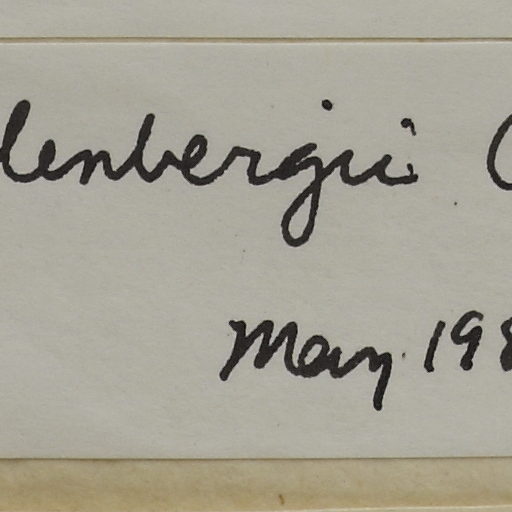 lenbergii (
May 198